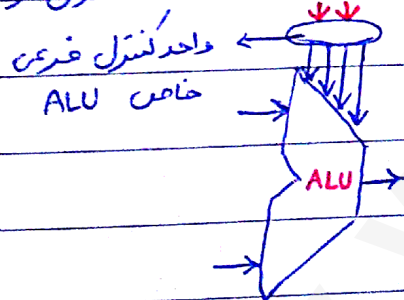 واحد کنترل فرعی
خاص ALU
ALU